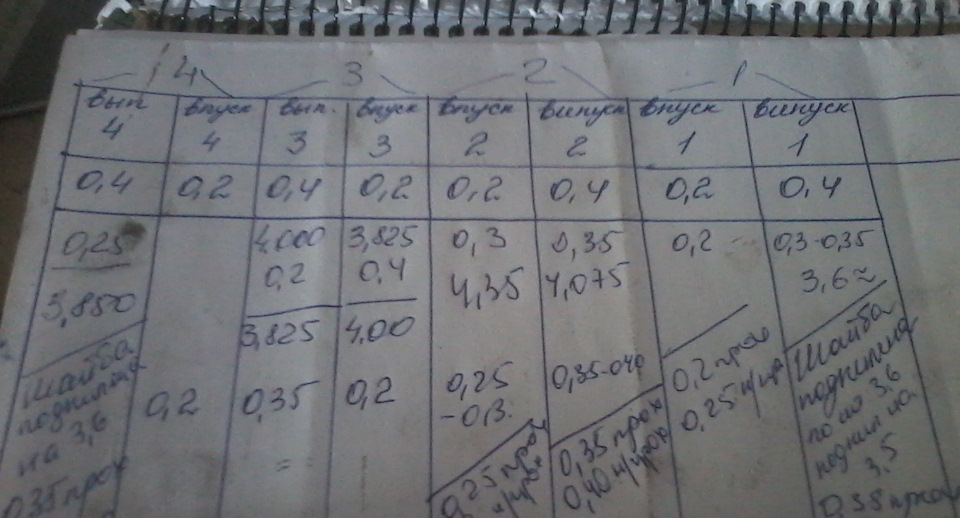 4 3 2 1
вып впуск вып. впуск впуск випуск впуск випуск
4 4 3 3 2 2 1 1
0,4 0,2 0,4 0,2 0,2 0,4 0,2 0,4
0,25 4.000 3,825 0,3 0,35 0,2 0,3-0,35
3,850 0,2 0,4 4,35 4,075 3,6≈
3,825 4,00
Шайба
поднята
на 3,6
0,35 прох
0,2 0,35 0,2
= =
0,25
-0,3.
0,25 прох
н/прох
0,35-040
0,35 прох
0,40 н/прох
0,2 прох
0,25 н/
Шайба
3,6
на
3,5